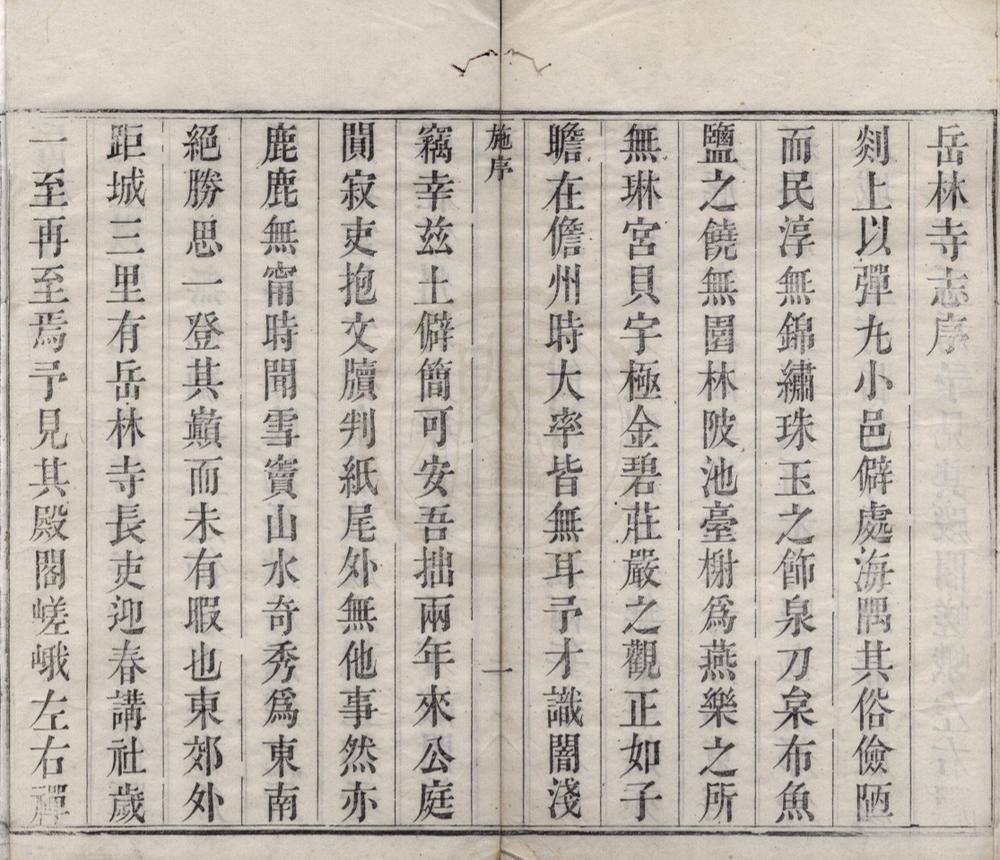 岳林寺志序
剡上以彈丸小邑僻處海隅其俗儉陋
而民淳無錦繡珠玉之飾泉刀枲布魚
鹽之饒無園林陂池臺榭爲燕樂之所
無琳宮貝宇極金碧莊嚴之觀正如子
瞻在儋州時大率皆無耳予才識闇淺
施序
一
竊幸兹土僻簡可安吾拙兩年來公庭
閴寂吏抱文牘判紙尾外無他事然亦
鹿鹿無甯時聞雪竇山水奇秀爲東南
絕勝思一登其巔而未有暇也東郊外
距城三里有岳林寺長吏迎春講社歲
一至再至焉予見其殿閣嵯峨左右禪